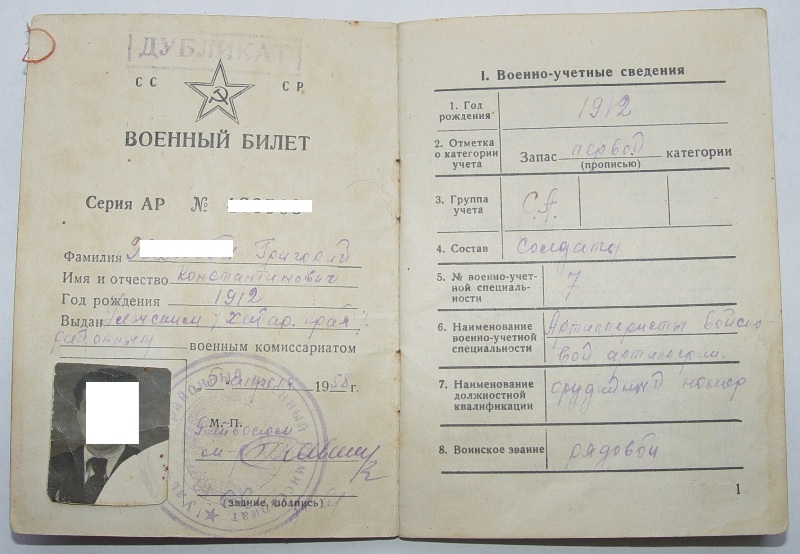 ДУБЛИКАТ
СС СР
ВОЕННЫЙ БИЛЕТ
Серия АР №
Фамилия Григорий
Имя и отчество Константинович
Год рождения 1912
Выдан
районным военным комиссариатом
5 апреля 1958 г.
М.-П.
(звание, подпись)
I. Военно-учетные сведения
1. Год
рождения
1912
2. Отметка
о категории
учета
Запас первой категории
(прописью)
3. Группа
учета
С.А.
4. Состав
солдаты
5. № военно-учет-
ной специаль-
ности
7
6. Наименование
военно-учетной
специальности
Артиллеристы войско
вой артиллерии.
7. Наименование
должностной
квалификации
орудийный номер
8. Воинское звание
рядовой
1